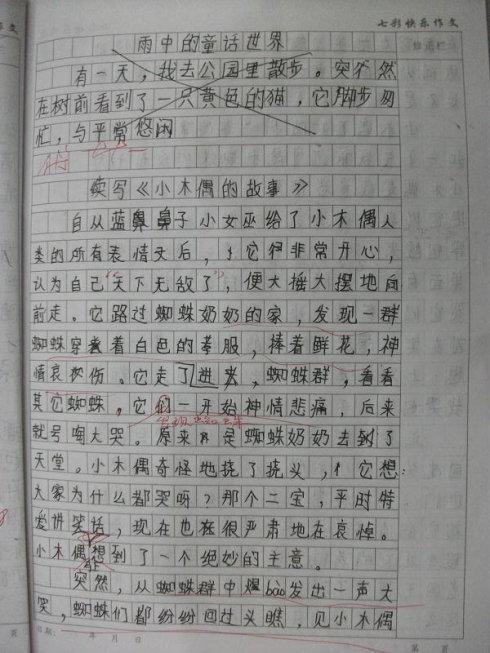 七彩快乐作文
雨中的童话世界
有一天，我去公园里散步。突然
在树前看到了一只黄色的猫，它脚步匆
忙，与平常悠闲
续写《小木偶的故事》
自从蓝鼻鼻子小女巫给了小木偶人
类的所有表情文后，它很非常开心，
认为自己“天下无敌了”，便大摇大摆地向
前走。它路过蜘蛛奶奶的家，发现一群
蜘蛛穿着白色的孝服，捧着鲜花，神
情哀伤。它走了进去，蜘蛛群，看看
其它蜘蛛。它们一开始神情悲痛，后来
就号啕大哭。原来是蜘蛛奶奶去到了
天堂。小木偶奇怪地挠了挠头，它想：
大家为什么都哭呀？那个二宝，平时特
爱讲笑话，现在也在很严肃地在哀悼。
小木偶想到了一个绝妙的主意。
突然，从蜘蛛群中爆bào发出一声大
笑，蜘蛛们都纷纷回过头瞧，见小木偶
年 月 日
第 页